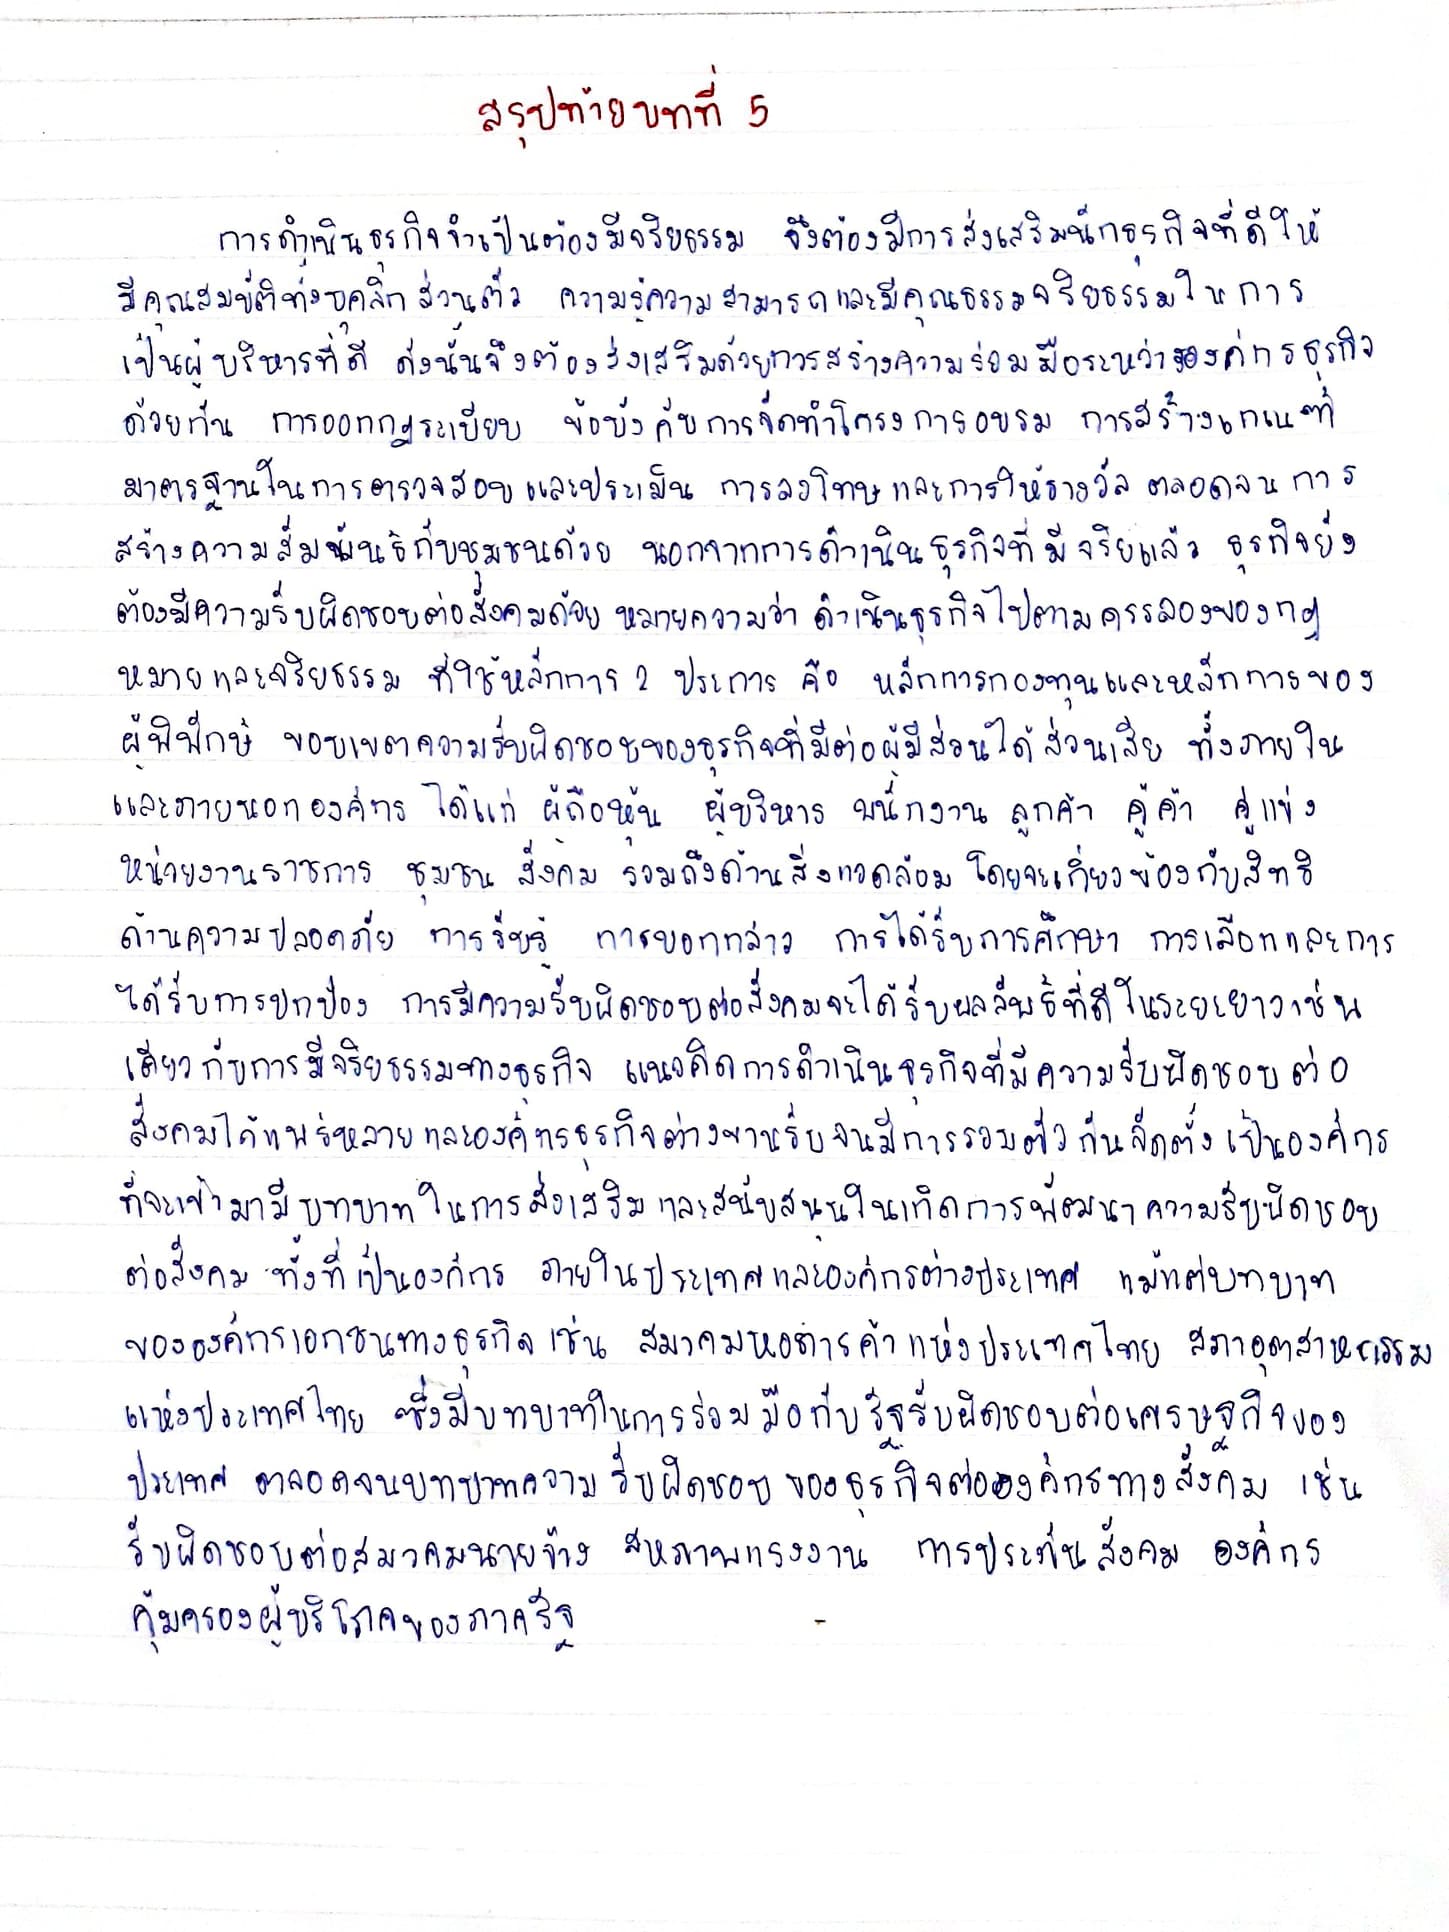 สรุปท้ายบทที่ 5
การดำเนินธุรกิจจำเป็นต้องมีจริยธรรม จึงต้องมีการส่งเสริมนักธุรกิจที่ดีให้
มีคุณสมบัติทั้งบุคลิกส่วนตัว ความรู้ความสามารถและมีคุณธรรมจริยธรรมในการ
เป็นผู้บริหารที่ดี ดังนั้นจึงต้องส่งเสริมด้วยการสร้างความร่วมมือระหว่างองค์กรธุรกิจ
ด้วยกัน การออกกฎระเบียบ ข้อบังคับการจัดทำโครงการอบรม การสร้างเกณฑ์
มาตรฐานในการตรวจสอบและประเมิน การลงโทษและการให้รางวัล ตลอดจนการ
สร้างความสัมพันธ์กับชุมชนด้วย นอกจากการดำเนินธุรกิจที่มีจริยแล้ว ธุรกิจยัง
ต้องมีความรับผิดชอบต่อสังคมด้วย หมายความว่า ดำเนินธุรกิจไปตามครรลองของกฎ
หมายและจริยธรรม ที่ใช้หลักการ 2 ประการ คือ หลักการกองทุนและหลักการของ
ผู้พิทักษ์ ขอบเขตความรับผิดชอบของธุรกิจที่มีต่อผู้มีส่วนได้ส่วนเสีย ทั้งภายใน
และภายนอกองค์กร ได้แก่ ผู้ถือหุ้น ผู้บริหาร พนักงาน ลูกค้า คู่ค้า คู่แข่ง
หน่วยงานราชการ ชุมชน สังคม รวมถึงด้านสิ่งแวดล้อม โดยจะเกี่ยวข้องกับสิทธิ
ด้านความปลอดภัย การรับรู้ การบอกกล่าว การได้รับการศึกษา การเลือกและการ
ได้รับการปกป้อง การมีความรับผิดชอบต่อสังคมจะได้รับผลลัพธ์ที่ดีในระยะยาวเช่น
เดียวกับการมีจริยธรรมทางธุรกิจ แนวคิดการดำเนินธุรกิจที่มีความรับผิดชอบต่อ
สังคมได้แพร่หลายและองค์กรธุรกิจต่างขานรับจนมีการรวมตัวกันจัดตั้งเป็นองค์กร
ที่จะเข้ามามีบทบาทในการส่งเสริมและสนับสนุนในเกิดการพัฒนาความรับผิดชอบ
ต่อสังคม ทั้งที่เป็นองค์กร ภายในประเทศและองค์กรต่างประเทศ แม้แต่บทบาท
ขององค์กรเอกชนทางธุรกิจ เช่น สมาคมหอการค้าแห่งประเทศไทย สภาอุตสาหกรรม
แห่งประเทศไทย ซึ่งมีบทบาทในการร่วมมือกับรัฐรับผิดชอบต่อเศรษฐกิจของ
ประเทศ ตลอดจนบทบาทความรับผิดชอบของธุรกิจต่อองค์กรทางสังคม เช่น
รับผิดชอบต่อสมาคมนายจ้าง สหภาพแรงงาน การประกันสังคม องค์กร
คุ้มครองผู้บริโภคของภาครัฐ